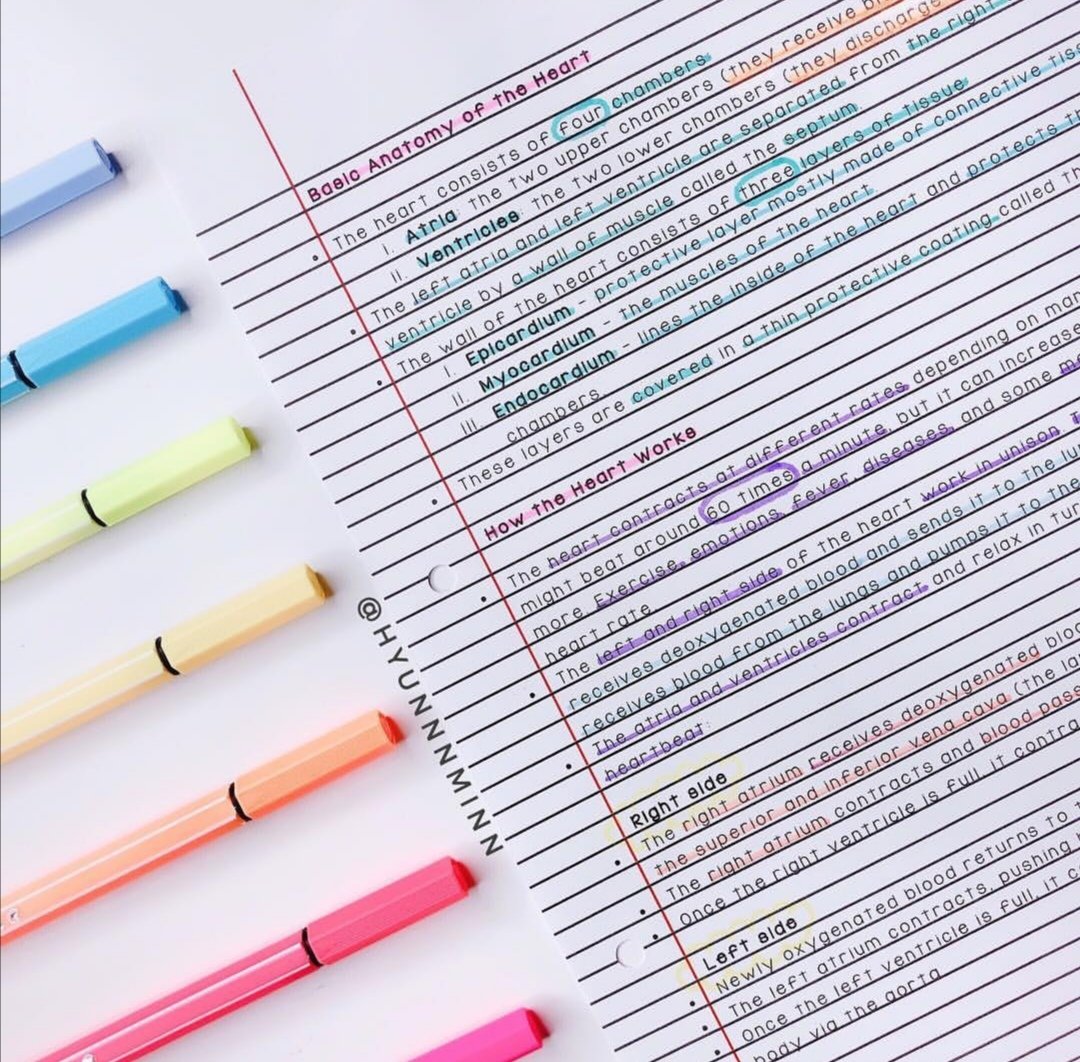 Basic Anatomy of the Heart
The heart consists of four chambers.
i. Atria: the two upper chambers (they receive
ii. Ventricles: the two lower chambers (they discharge
The left atria and left ventricle are separated from the right
ventricle by a wall of muscle called the septum.
The wall of the heart consists of three layers of tissue
i. Epicardium - protective layer mostly made of connective
ii. Myocardium - the muscles of the heart.
iii. Endocardium - lines the inside of the heart and protects
chambers.
These layers are covered in a thin protective coating called
How the Heart Works
The heart contracts at different rates depending on
might beat around 60 times a minute, but it can increase
more. Exercise, emotions, fever, diseases, and some
heart rate.
The left and right side of the heart work in unison.
receives deoxygenated blood and sends it to the
receives blood from the lungs and pumps it to the
The atria and ventricles contract and relax in
heartbeat:
Right side
The right atrium receives deoxygenated
the superior and inferior vena cava (the
The right atrium contracts and blood
Once the right ventricle is full, it
Left side
Newly oxygenated blood returns to
The left atrium contracts, pushing
Once the left ventricle is full, it
body via the aorta
@HYUNNMINN